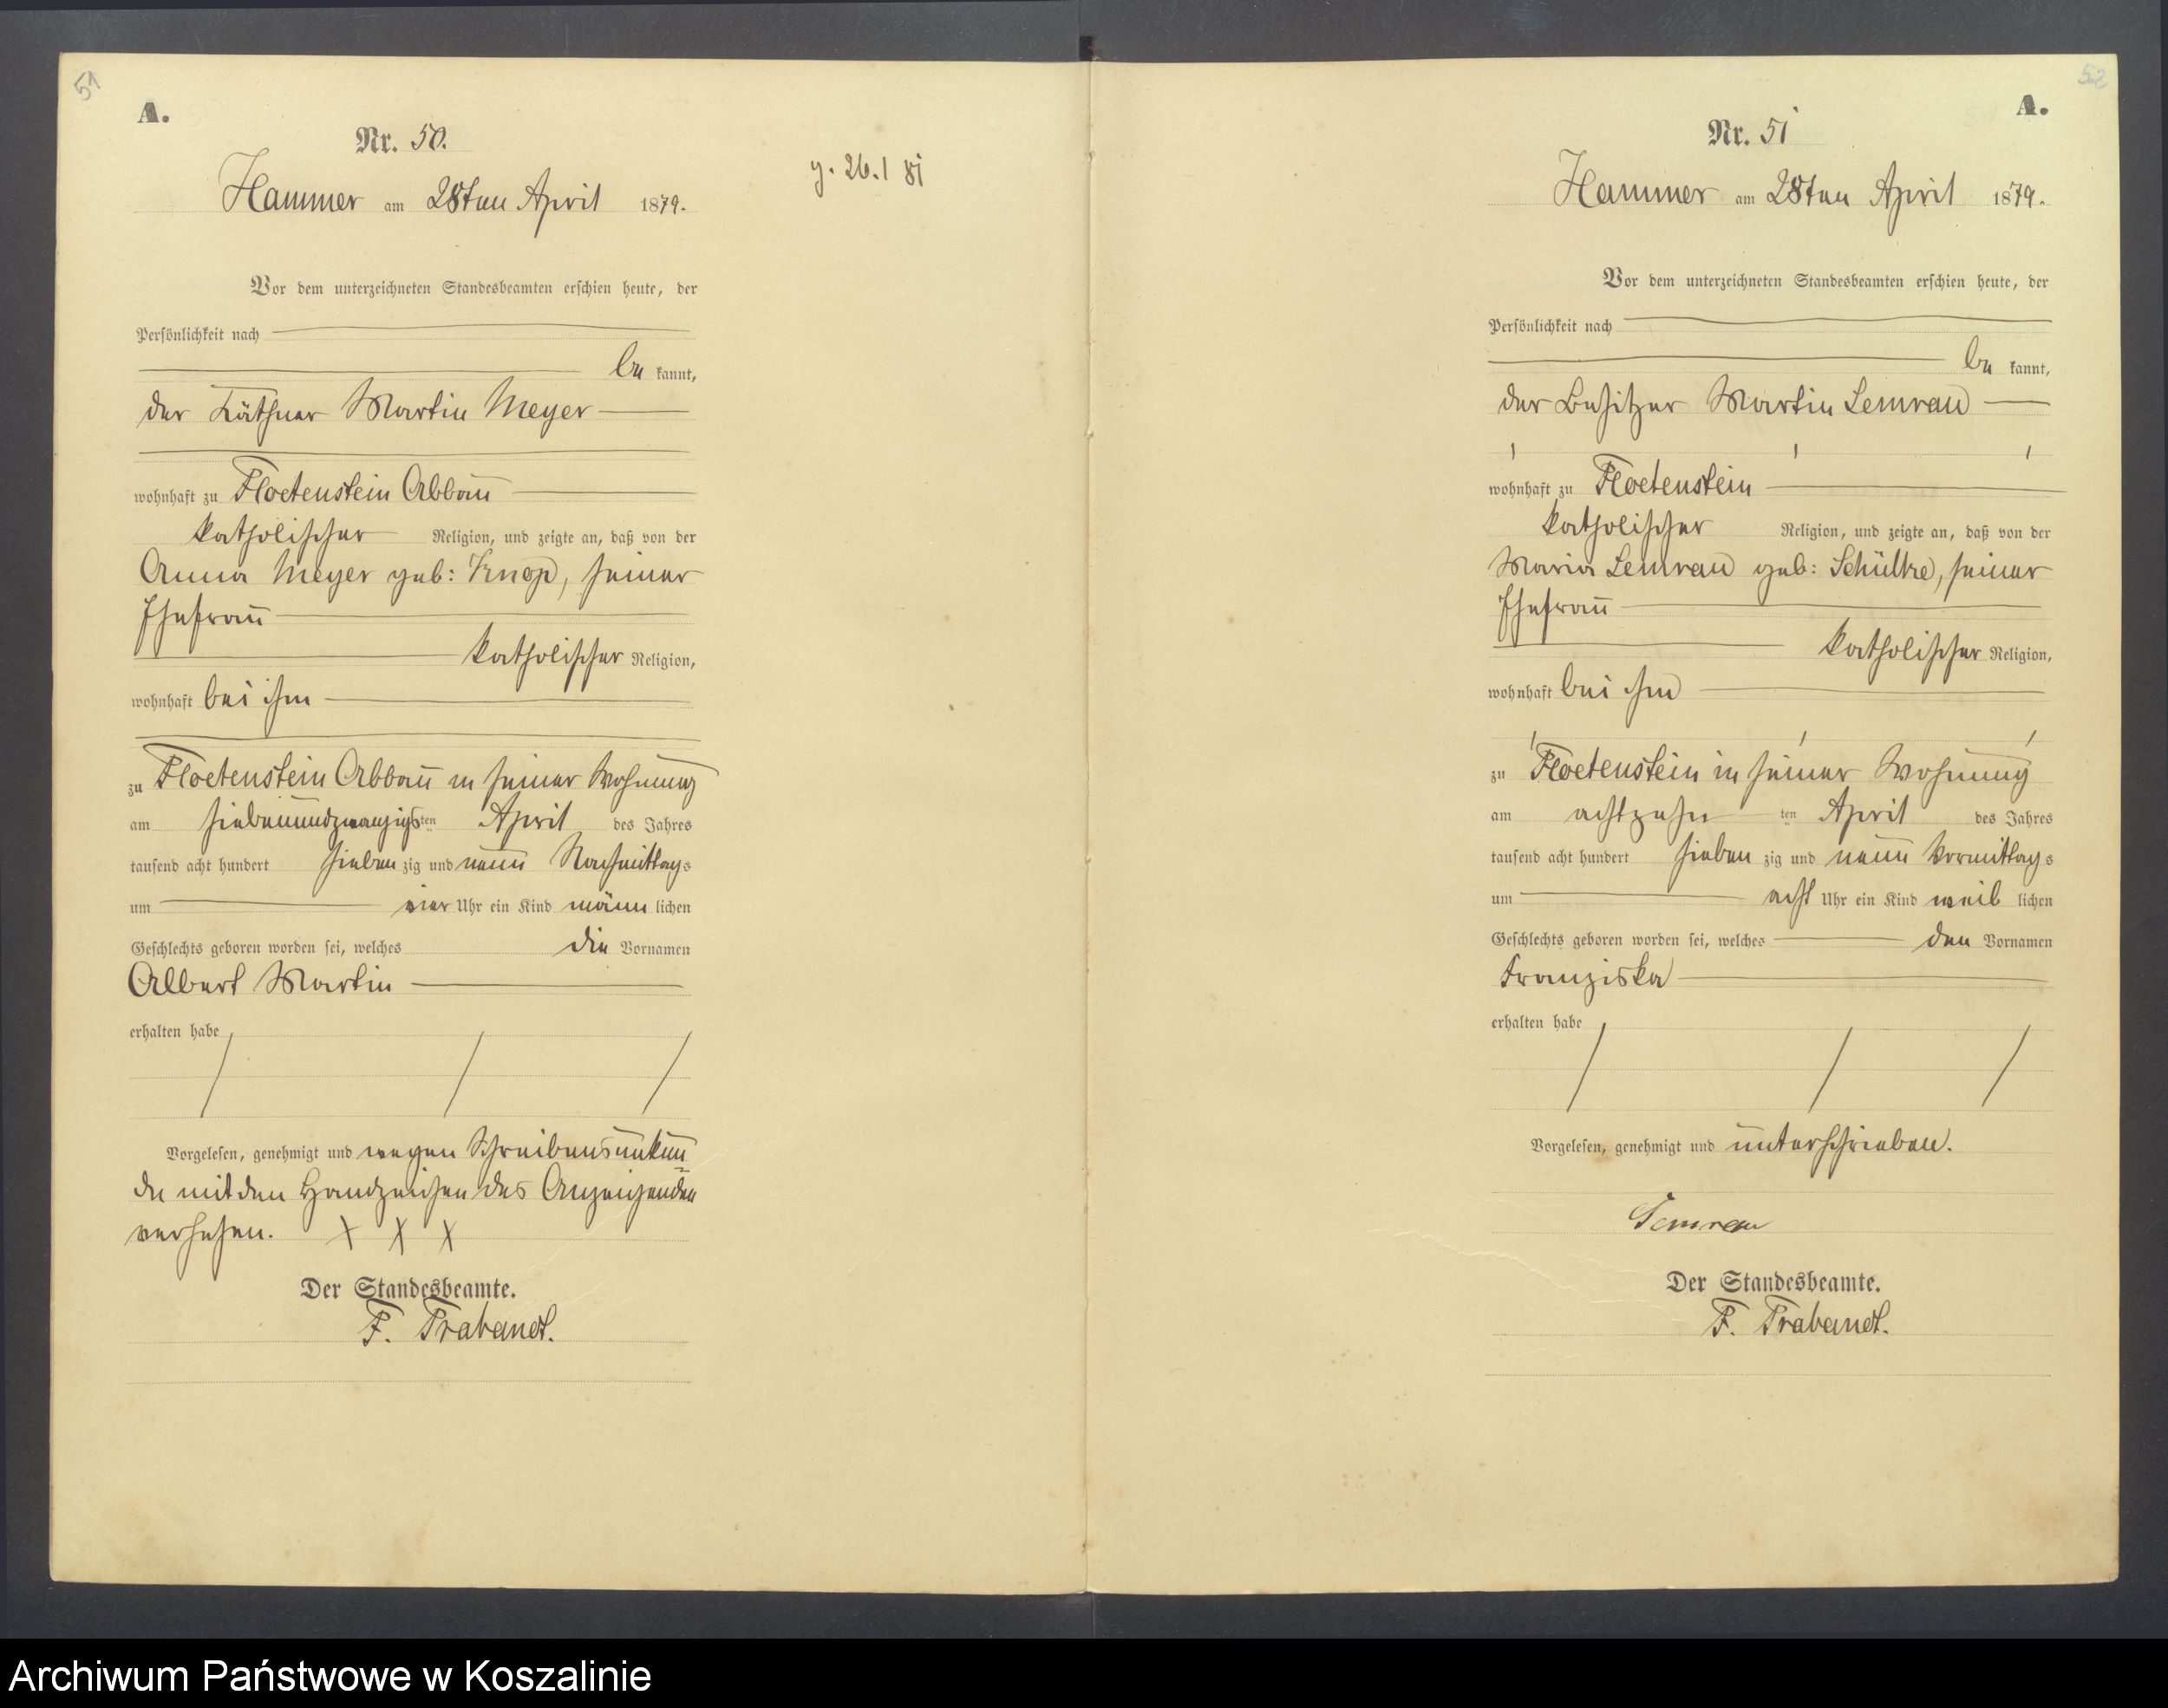 51
A.
Nr. 50.
Hammer am 28ten April 1879.
Vor dem unterzeichneten Standesbeamten erschien heute, der
Persönlichkeit nach
be kannt,
der Käthner Martin Meyer
wohnhaft zu Floetenstein Abbau
katholischer Religion, und zeigte an, daß von der
Anna Meyer geb: Knop, seiner
Ehefrau
katholischer Religion,
wohnhaft bei ihm
zu Floetenstein Abbau in seiner Wohnung
am siebenundzwanzigsten April des Jahres
tausend acht hundert sieben zig und neun Nachmittags
um vier Uhr ein Kind männ lichen
Geschlechts geboren worden sei, welches die Vornamen
Albert Martin
erhalten habe
Vorgelesen, genehmigt und wegen Schreibensunkun
de mit den Handzeichen des Anzeigenden
versehen. X X X
Der Standesbeamte.
F. Trabandt.
g. 26.1 81
52
A.
Nr. 51
Hammer am 28ten April 1879.
Vor dem unterzeichneten Standesbeamten erschien heute, der
Persönlichkeit nach
be kannt,
der Besitzer Martin Semrau
wohnhaft zu Floetenstein
katholischer Religion, und zeigte an, daß von der
Maria Semrau geb: Schültke, seiner
Ehefrau
katholischer Religion,
wohnhaft bei ihm
zu Floetenstein in seiner Wohnung
am achtzehn ten April des Jahres
tausend acht hundert sieben zig und neun Vormittags
um acht Uhr ein Kind weib lichen
Geschlechts geboren worden sei, welches den Vornamen
Franziska
erhalten habe
Vorgelesen, genehmigt und unterschrieben.
Semrau
Der Standesbeamte.
F. Trabandt.
Archiwum Państwowe w Koszalinie